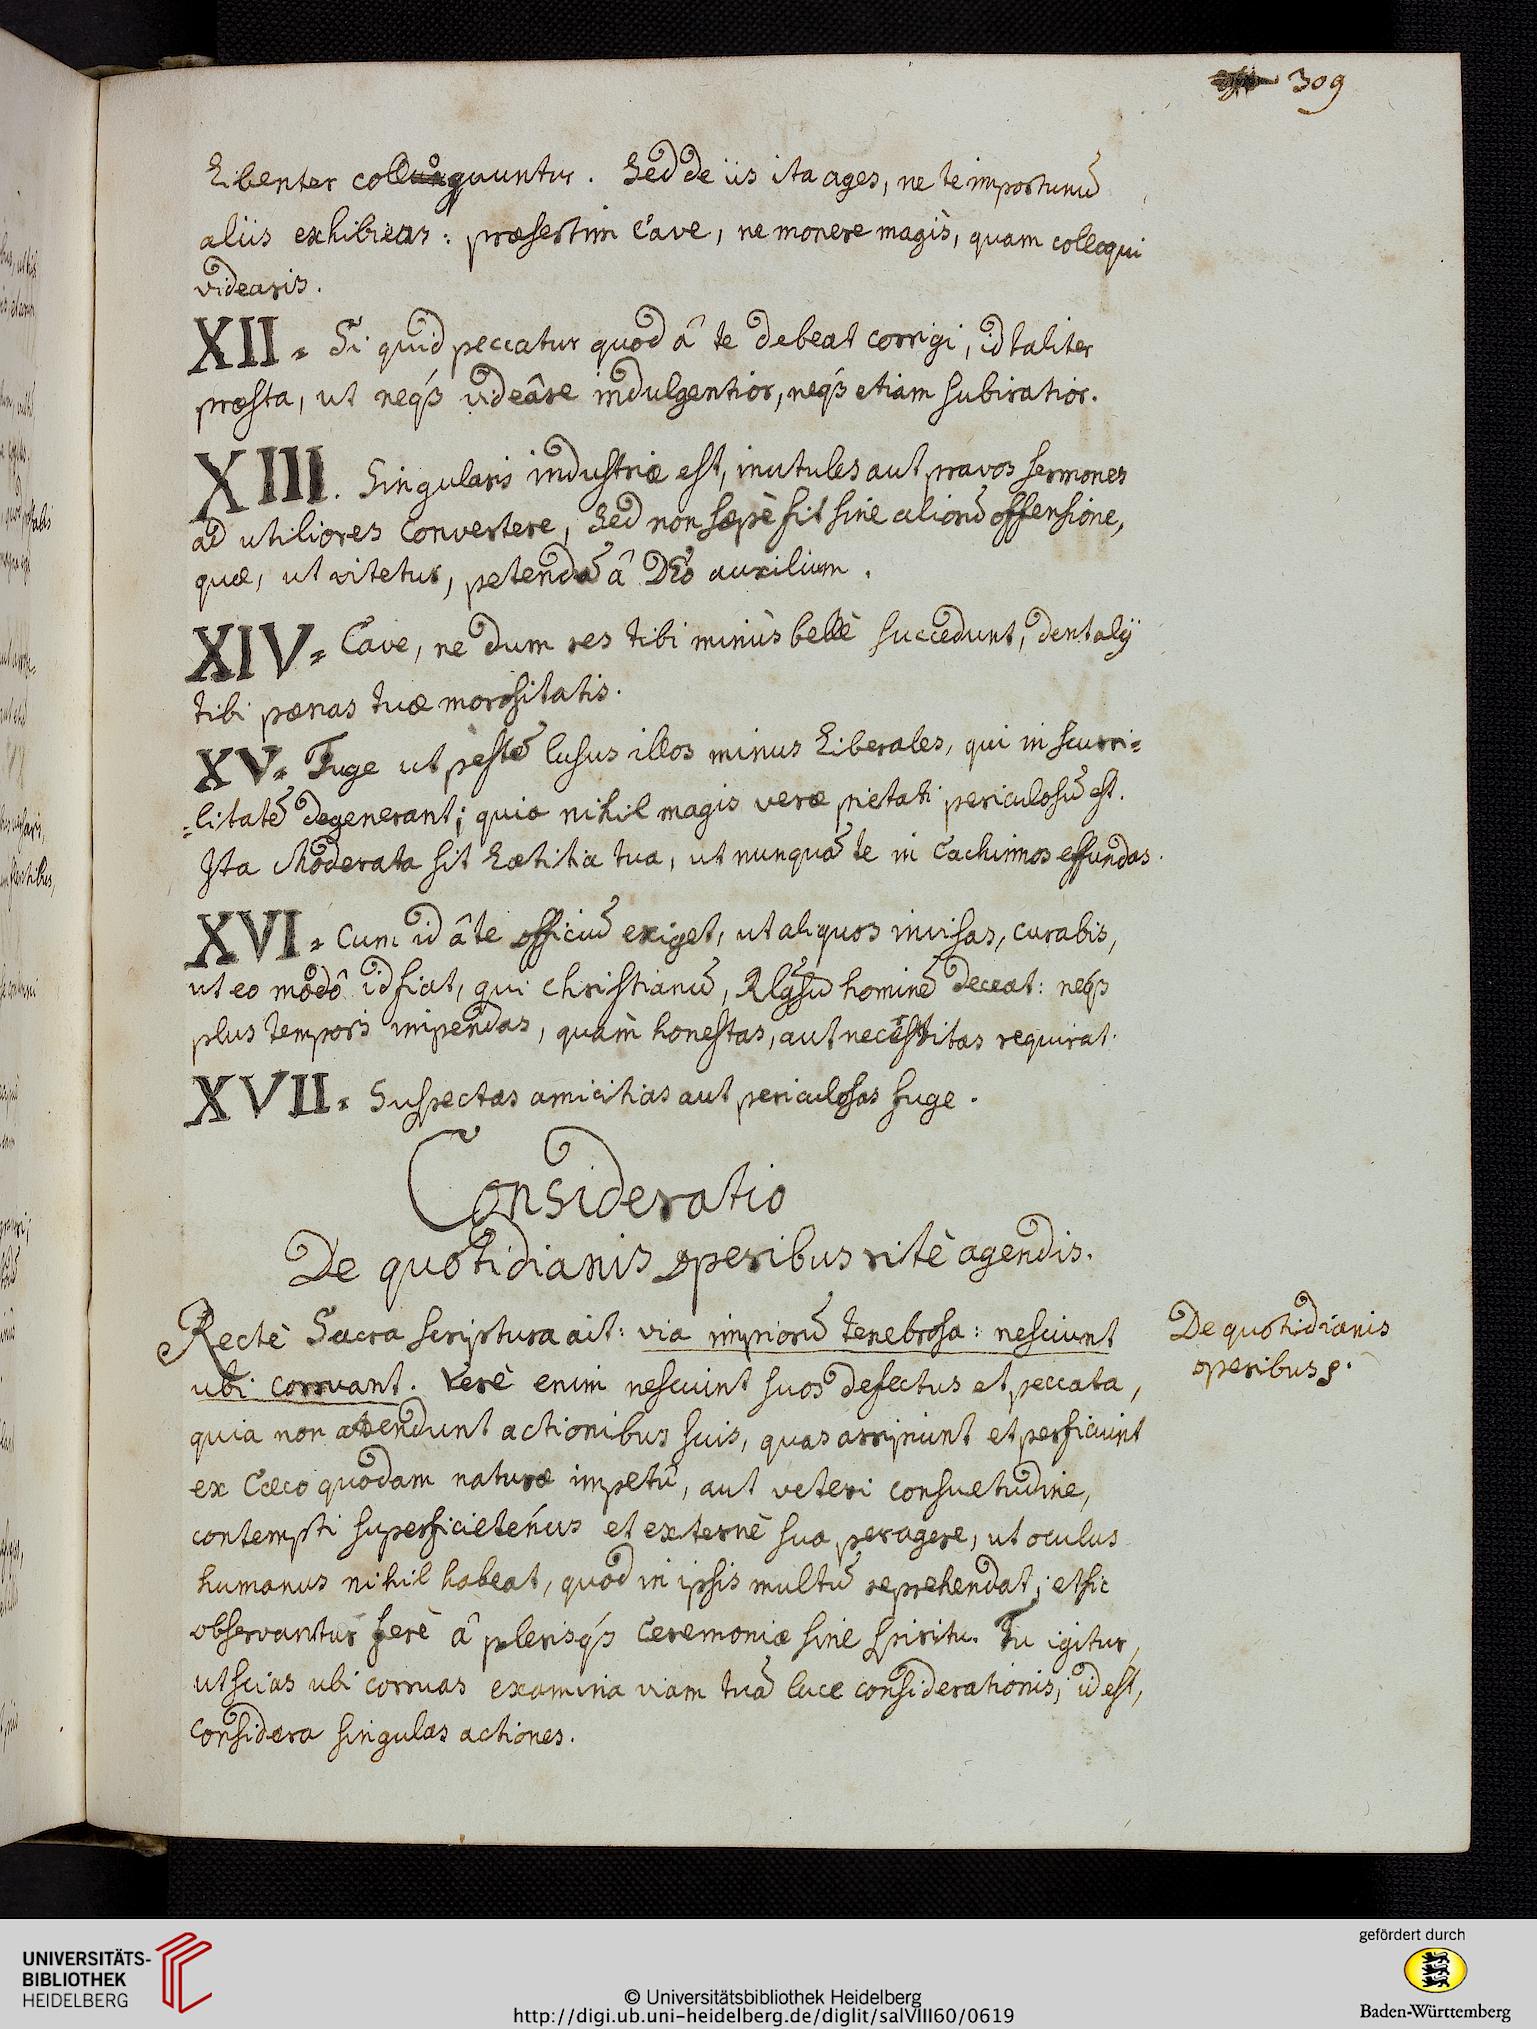 309
Libenter colloquuntur. Sed de iis ita ages, ne te importunũ
aliis exhibeas: præsertim Cave, ne monere magis, quam colloqui
videaris.
XII. Si quid peccatur quod â te debeat corrigi, id taliter
præsta, ut neqȝ videâre indulgentior, neqȝ etiam subiratior.
XIII. Singularis industriæ est, inutules aut pravos sermones
ad utiliores Convertere, Sed non sæpè fit sine aliorũ offensione,
quæ, ut vitetur, petendũ â DEo auxilium.
XIV. Cave, ne dum res tibi minùs bellè succedunt, dent alij
tibi pœnas tuæ morositatis.
XV. Fuge ut pestẽ lusus illos minus Liberales, qui in scurri=
=litatẽ degenerant; quia nihil magis veræ pietati periculosũ est.
Ita Moderata sit Lætitia tua, ut nunquã te in Cachinnos effundas.
XVI. Cum id â te officiũ exiget, ut aliquos invisas, curabis,
ut eo modô id fiat, qui Christianũ, Rlgsũ hominẽ deceat: neqȝ
plus temporis impendas, quàm honestas, aut necessitas requirat.
XVII. Suspectas amicitias aut periculosas fuge.
Consideratio
De quotidianis operibus ritè agendis.
Rectè Sacra scriptura ait: via impiorũ tenebrosa: nesciunt
ubi corruant. Verè enim nesciunt suos defectus et peccata,
quia non attendunt actionibus suis, quas arripiunt et perficiunt
ex Cæco quodam naturæ impetũ, aut veteri consuetudine,
contempti superficietenus et externè sua peragere, ut oculus
humanus nihil habeat, quod in ipsis multũ reprehendat; et sic
observantur ferè â plerisqȝ Ceremoniæ sine spiritu. Tu igitur,
ut scias ubi corruas examina viam tuã luce considerationis, id est,
Considera singulas actiones.
De quotidianis
operibus
UNIVERSITÄTS-
BIBLIOTHEK
HEIDELBERG
© Universitätsbibliothek Heidelberg
http://digi.ub.uni-heidelberg.de/diglit/salVIII60/0619
gefördert durch
Baden-Württemberg